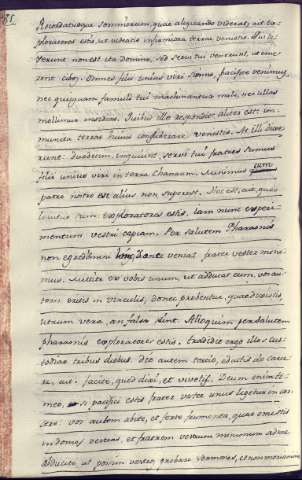 Recordatusque somniorum, quae aliquando viderat, ait ex-
ploratores estis, ut videatis infirmiora terrae venistis. Qui di-
xerunt non est ita domine, sed servi tui venerunt, ut eme-
rent cibos. Omnes filii unius viri sumus, pacifice venimus,
nec quicquam famuli tui machinantur mali, nec ullas
molimur insidias. Quibus ille respondit aliter est; im-
munita terrae huius considerare venistis. At illi dixe-
runt: duodecim, inquiunt, servi tui fratres sumus
filii unius viri in terra Chanaam. Minimus cum
patre nostro est alius non superest. Hoc est, ait, quod
locutus sum exploratores estis, iam nunc experi-
mentum vestri capiam. Per salutem Pharaonis
non egrediemini hinc, donec veniat frater vester mini-
mus. Mittite ex vobis unum, ut adducat eum, vos au-
tem eritis in vinculis, donec probentur, quae dixistis,
utrum vera, an falsa sint. Alioquin per salutem
pharaonis exploratores estis. Tradidit ergo illos cus-
todiae tribus diebus. Die autem tertio, eductis de carce-
re, ait: facite, quod dixi, et vivetis. Deum enim ti-
meo, si pacifici estis frater vester unus ligetur in car-
cere: vos autem abite, et ferte frumenta, quae emistis
in domos vestras, et fratrem vestrum minimum ad me
adducite, ut possim vestros probare sermones, et non moriamini